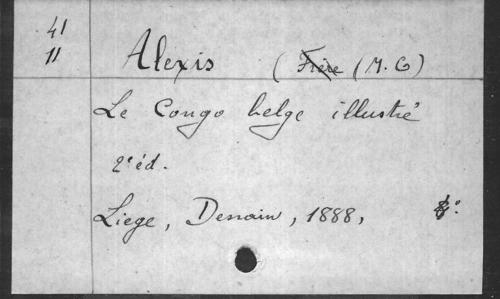 41
11
Alexis (Frère (M. G)
Le Congo belge illustré
2e éd.
Liege, Dessain, 1888, 8°.